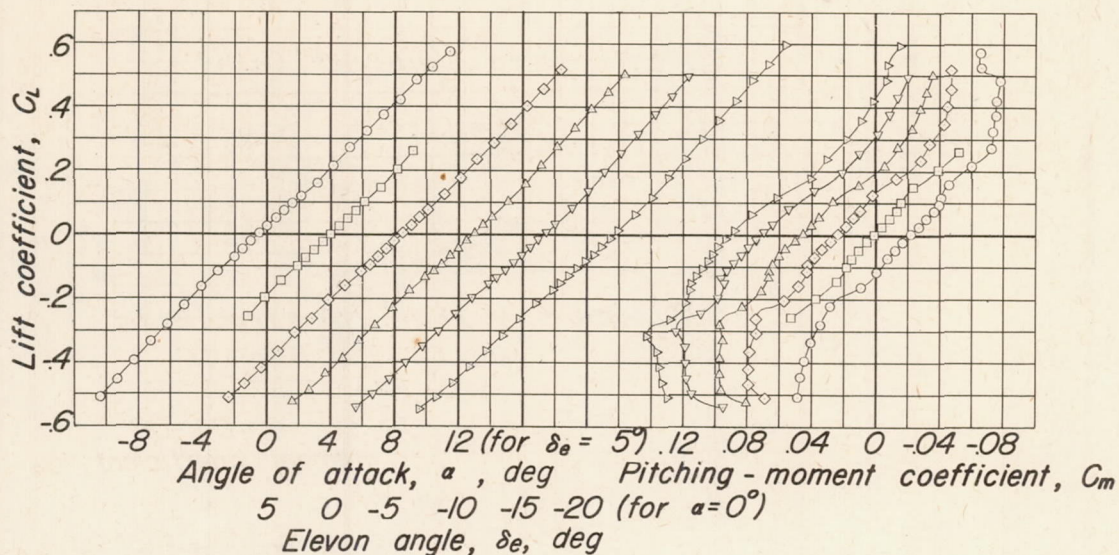 .6
.4
.2
0
-.2
-.4
-.6
Lift coefficient, C_L
-8 -4 0 4 8 12 (for δe = 5°) .12 .08 .04 0 -.04 -.08
Angle of attack, α , deg Pitching-moment coefficient, Cm
5 0 -5 -10 -15 -20 (for α=0°)
Elevon angle, δe, deg